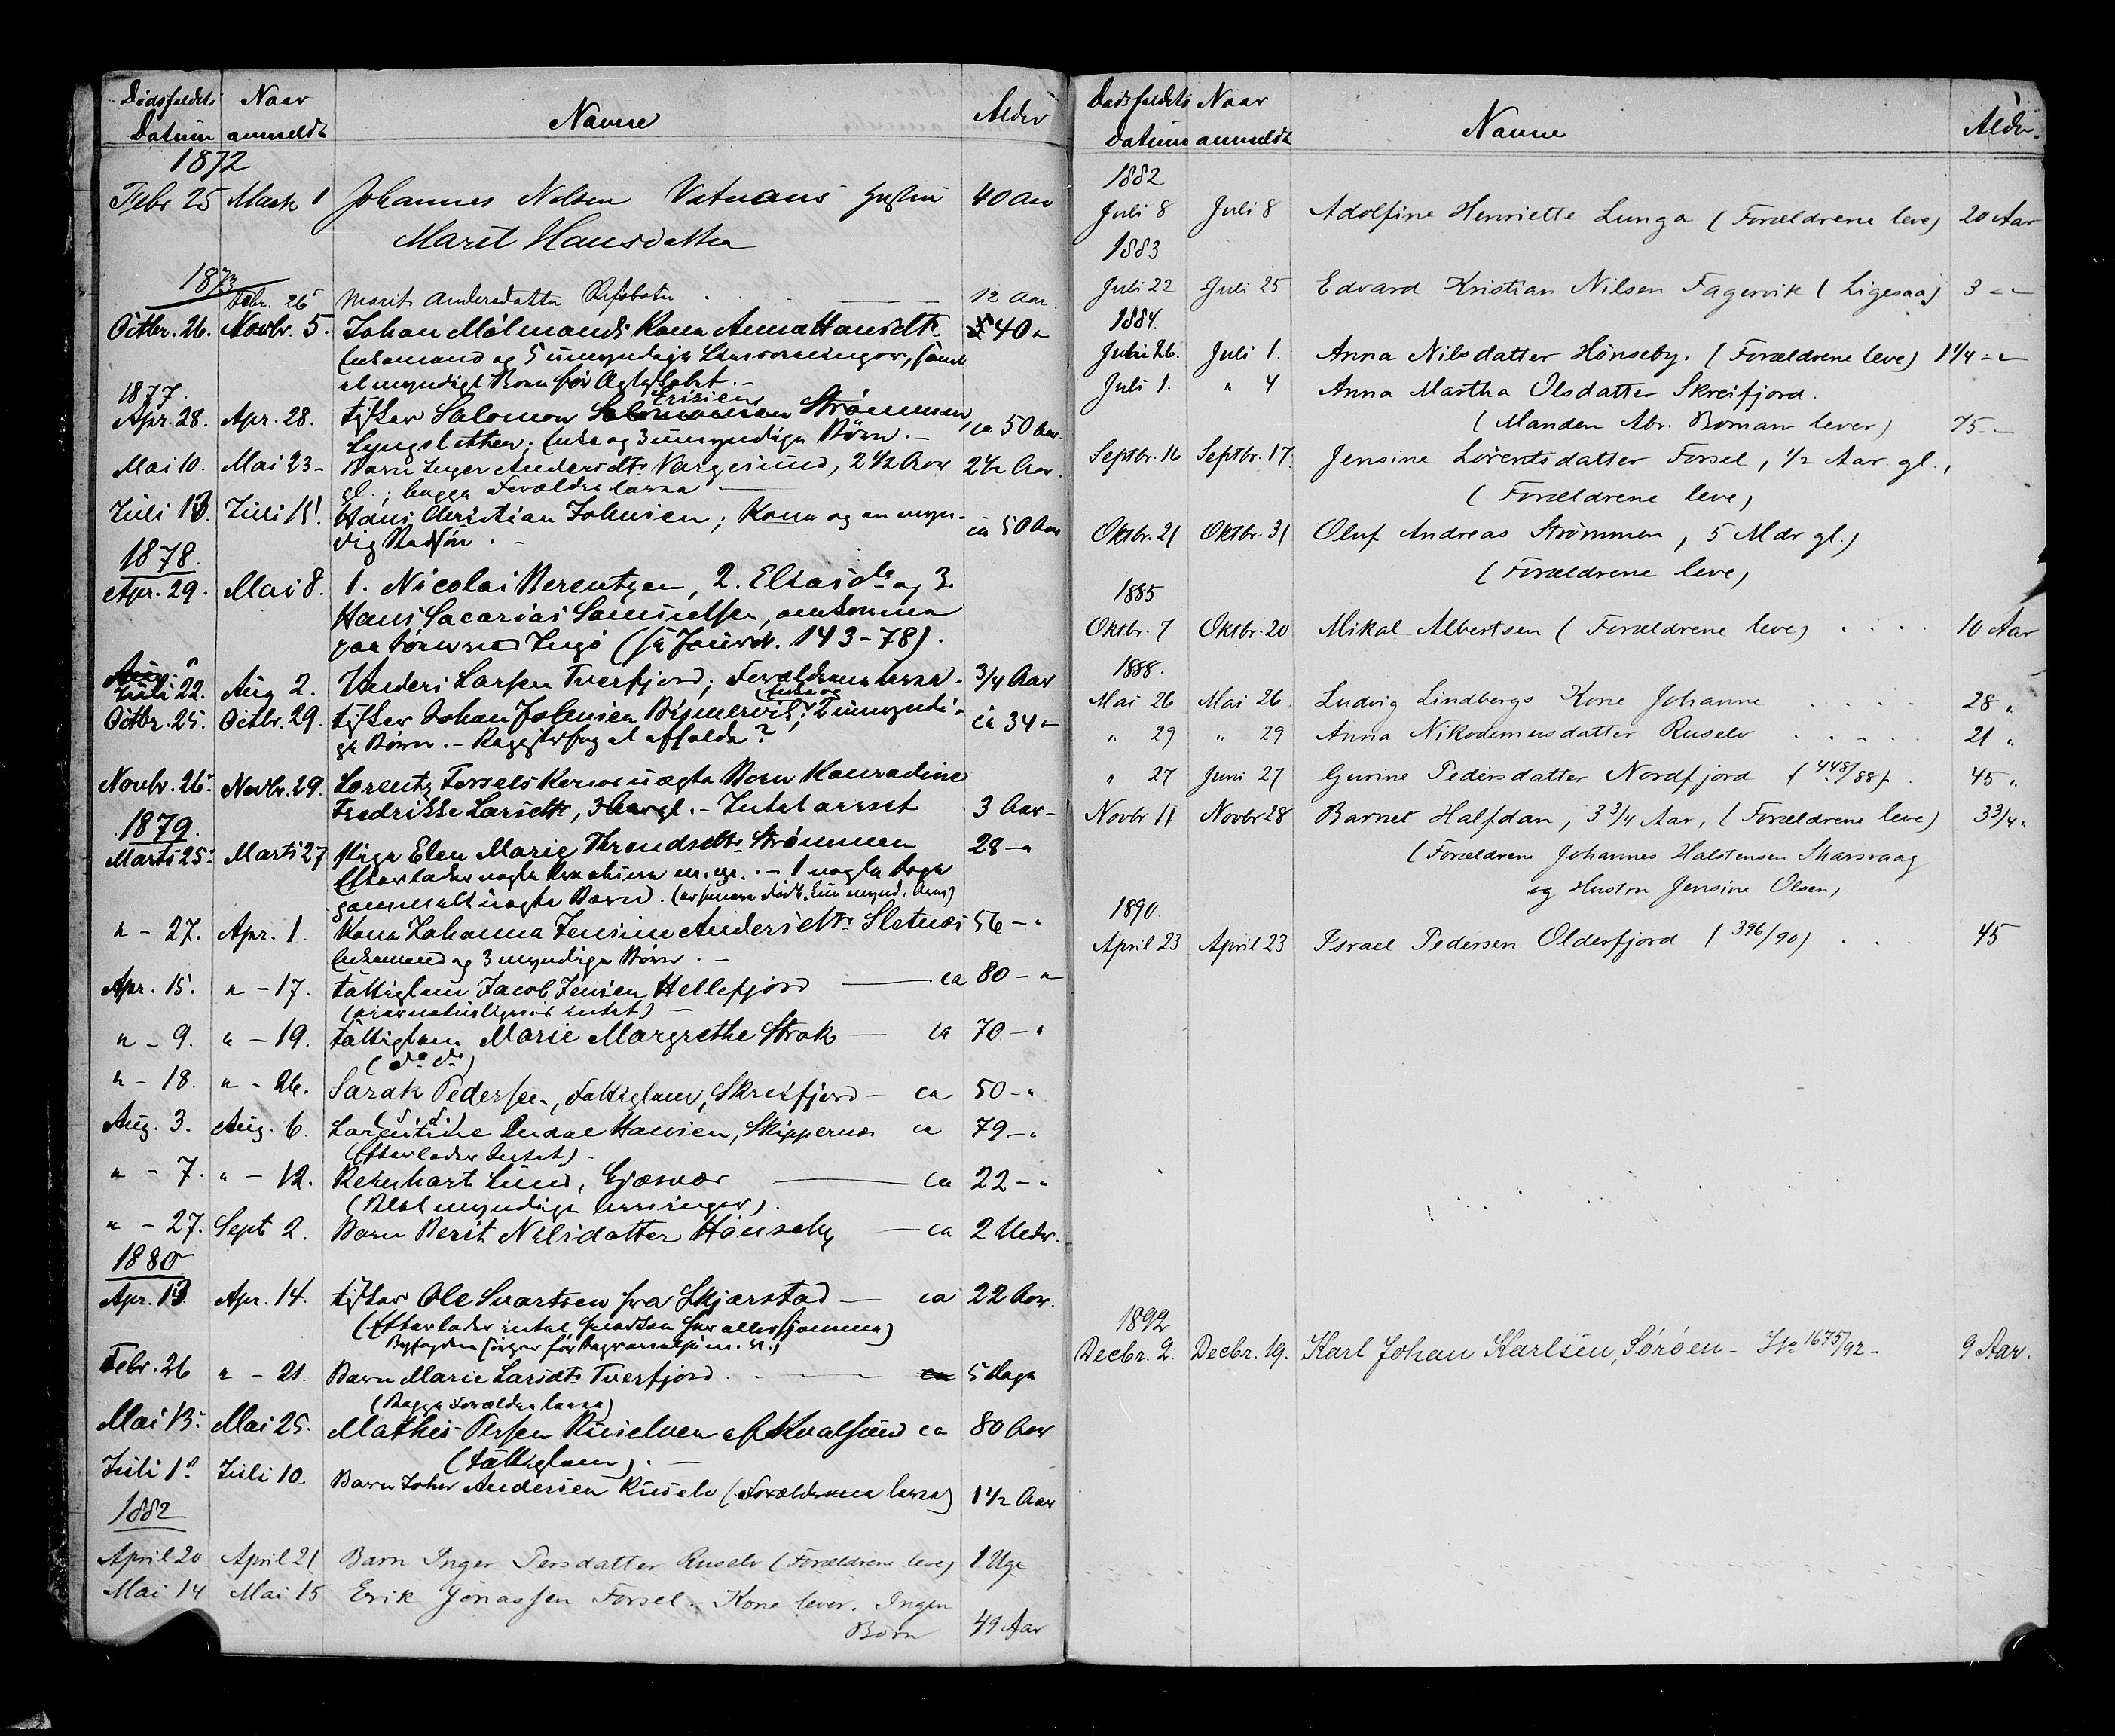 Dødsfaldets Naar Navne Alder
Datum anmeldt
1872
Febr 25 Marts 1 Johannes Nelsen 40 Aar
Marit Hansdatter
1873
Febr. 26 Marit Andersdatter 12 Aar
Octbr. 26. Novbr. 5. Johan Målmands Kone Anna Hansdtr. 40 "
Enkemand og 5 umyndige Livsarvinger, samt
et myndigt Barn før Ægteskabet.
1877.
Apr. 28. Apr. 28. Fisker Salomon Eriksen Strømmen, ca 50 Aar.
; Enke og 3 umyndige Børn.
Mai 10. Mai 23 Barn Inger Andersdtr. Vargesund, 2 1/2 Aar 2 1/2 Aar.
gl.; begge Forældre leve
Juli 13. Juli 15. Hans Christian Johnsen; Kone og en myn- ca 50 Aar
dig Stedsøn.
1878.
Apr. 29. Mai 8. 1. Nicolai Berentzen, 2. Elias do og 3.
Hans Sacarias Samuelsen, omkomne
paa (se Journ. 143-78).
Juli 22. Aug 2. Anders Larsen Tverfjord; Forældrene leve. 3/4 Aar
Octbr. 25. Octbr. 29. Fisker Johan Johnsen; Enke og 2 umyndi- ca 34 "
ge Børn.
Novbr. 26. Novbr. 29. Lorentz Forsels Kones uægte Barn Konradine
Fredrikke Larsdtr, 3 Aar gl. - Intet arvet 3 Aar
1879.
Marts 25. Marts 27 Pige Elen Marie Throndsdtr. Strømmen 28 - "
Efterlader m.m. - 1 nogle Dage
gammelt uægte Barn.
" - 27. Apr. 1. Kone Johanna Jensine Andersdtr. Sletnæs 56 - "
Enkemand og 3 myndige Børn.
Apr. 15. " - 17. Fattiglem Jacob Jensen Hellefjord ca 80 - "
" - 9. " - 19. Fattiglem Marie Margrethe Strak ca 70 - "
(do do)
" - 18. " - 26. Sarak Pedersen, Fattiglem, Skreifjord ca 50 - "
Aug. 3. Aug. 6. Hansen, Skippernæs ca 79 - "
(Efterlader Intet).
" - 7. " - 12. Reinhart Lund, Gjæsvær ca 22 - "
(Blot myndige Arvinger).
" - 27. Sept 2. Barn Berit Nilsdatter Hønseby ca 2 Uger.
1880
Apr. 13. Apr. 14. Fisker Ole Svartsen fra Skjærstad ca 22 Aar.
(Efterlader intet
Febr. 26 " - 21. Barn Marie Larsdtr. Tverfjord 5 Dage
(Begge Forældre leve)
Mai 13. Mai 25. Mathis Persen Ruselven af Kvalsund ca 80 Aar
(Fattiglem).
Juli 1. Juli 10. Barn Andersen Ruselv (Forældrene leve) 1 1/2 Aar
1882
April 20 April 21 Barn Inger Persdatter Ruselv (Forældrene leve) 1 Uge
Mai 14 Mai 15 Erik Jonassen Forsel - Kone lever. Ingen
Børn 49 Aar
Dødsfaldets Naar Navne Alder
Datum anmeldt
1882
Juli 8 Juli 8 Adolfine Henriette Lunga (Forældrene leve) 20 Aar
1883
Juli 22 Juli 25 Edvard Kristian Nilsen Fagervik (Ligesaa) 3 - "
1884.
Juni 26. Juli 1. Anna Nilsdatter Hønseby. (Forældrene leve) 1 1/4 - "
Juli 1. " 4 Anna Martha Olsdatter Skreifjord.
(Manden Abr. Boman lever) 75 - "
Septbr. 16 Septbr. 17. Jensine Lorentsdatter Forsel, 1/2 Aar gl.,
(Forældrene leve)
Oktbr. 21 Oktbr. 31 Oluf Andreas Strømmen, 5 Mdr gl.)
(Forældrene leve)
1885
Oktbr. 7 Oktbr. 20 Mikal Albertsen (Forældrene leve) . . . . 10 Aar
1888.
Mai 26 Mai 26. Ludvig Lindbergs Kone Johanne . . . . . 28 "
" 29 " 29 Anna Nikodemusdatter Ruselv . . . . . 21 "
" 27 Juni 27 Gurine Pedersdatter Nordfjord (448/88) . 45 "
Novbr 11 Novbr 28 Barnet Halfdan, 3 3/4 Aar, (Forældrene leve) 3 3/4 "
(Forældrene Johannes Halstensen Skarsvaag
og Hustru Jensine Olsen)
1890.
April 23 April 23 Israel Pedersen Olderfjord (396/90) . . . 45
1892
Decbr. 2. Decbr. 19. Karl Johan Karlsen, Sørøen - 1675/92 - 9 Aar.